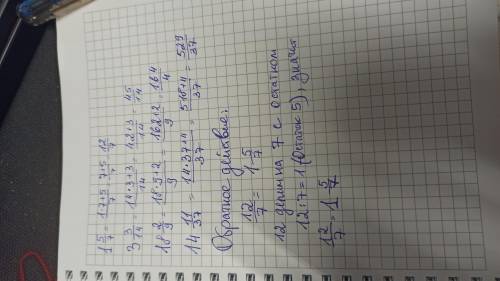 1 5/7 = 1·7+5/7 = 7+5/7 = 12/7
3 3/14 = 14·3+3/14 = 42+3/14 = 45/14
18 2/9 = 18·9+2/9 = 162+2/9 = 164/9
14 11/37 = 14·37+11/37 = 518+11/37 = 529/37
Обратное действие:
12/7 = 1 5/7
12 делим на 7 с остатком
12:7=1 (Остаток 5), значит
12/7 = 1 5/7